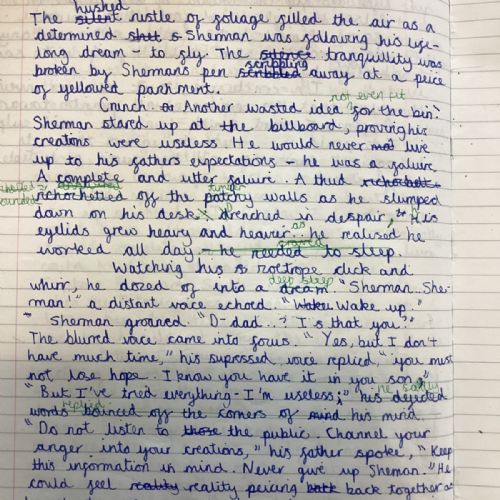 hushed
The silent rustle of foliage filled the air as a
determined shtt s Sherman was following his life-
long dream - to fly. The silence tranquillity was
scribbling
broken by Shermans pen scribbled away at a peice
of yellowed parchment.
not even fit
Crunch. or Another wasted idea for the bin.
Sherman stared up at the billboard, proving his
creations were useless. He would never not live
up to his fathers expectations - he was a failure.
A complete and utter failure. A thud richochett
richochetted off the patchy walls as he slumped
down on his desk, drenched in despair, His
eyelids grew heavy and heavier... as he realised he
craved
worked all day - he needed to sleep.
Watching his s zoetrope click and
deep sleep
whirr, he dozed of into a dream. "Sherman.. Sher-
man!" a distant voice echoed. "Wake Wake up."
" Sherman groaned. "D-dad..? Is that you?"
The blurred voice came into focus. "Yes, but I don't
have much time," his supressed voice replied, "you must
not lose hope. I know you have it in you son."
he sadly
"But I've tried everything - I'm useless;" his dejected
replied.
words bounced off the corners of mind his mind.
"Do not listen to those the public. Channel your
anger into your creations," his father spoke, "Keep
this information in mind. Never give up Sherman." He
could feel reality reality peicing back back together as